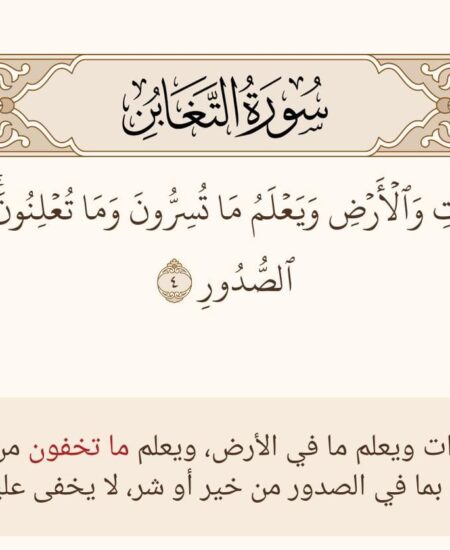 سُورَةُ التَّغَابُنِ
وَٱلْأَرْضِ وَيَعْلَمُ مَا تُسِرُّونَ وَمَا تُعْلِنُونَۚ
ٱلصُّدُورِ ٤
ويعلم ما في الأرض، ويعلم ما تخفون
بما في الصدور من خير أو شر، لا يخفى